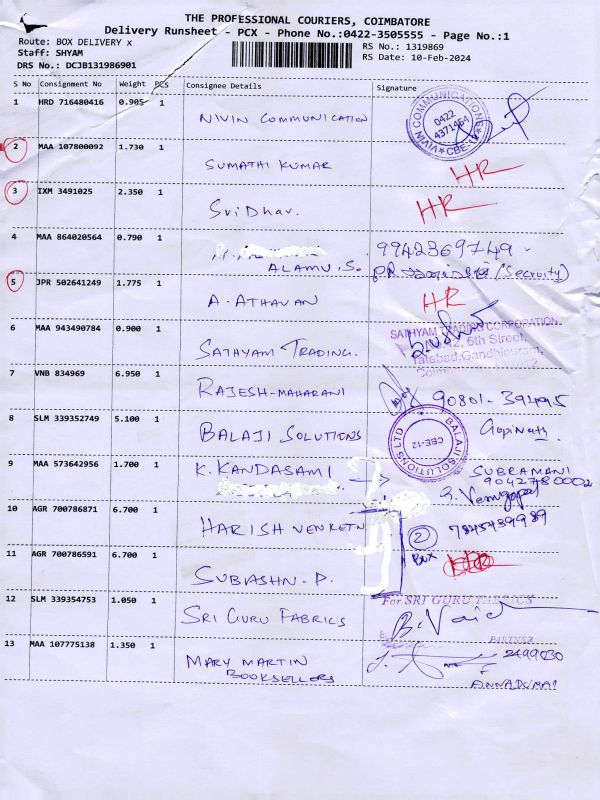 THE PROFESSIONAL COURIERS, COIMBATORE
Delivery Runsheet - PCX - Phone No.:0422-3505555 - Page No.:1
Route: BOX DELIVERY x
RS No.: 1319869
Staff: SHYAM
RS Date: 10-Feb-2024
DRS No.: DCJB131986901
S No Consignment No Weight PCS Consignee Details Signature
1 HRD 716480416 0.905 1 NIVIN COMMUNICATION NIVIN COMMUNICATIONS 0422 4371464 CBE-12
2 MAA 107800092 1.730 1 SUMATHI KUMAR HR
3 IXM 3491025 2.350 1 Sridhar. HR
4 MAA 864020564 0.790 1 ALAMU.S. 9942369749 (Secruity)
5 JPR 502641249 1.775 1 A. ATHAVAN HR
6 MAA 943490784 0.900 1 SATHYAM TRADING. SATHYAM TRADING CORPORATION
6th Street,
7 VNB 834969 6.950 1 RAJESH-MAHARANI 90801-39495
8 SLM 339352749 5.100 1 BALAJI SOLUTIONS BALAJI SOLUTIONS LTD CBE-12 Gopinath
9 MAA 573642956 1.700 1 K. KANDASAMI SUBRAMANI
9042780002
S. Venugopal
10 AGR 700786871 6.700 1 HARISH VENKETN 2 BOX 7845439989
11 AGR 700786591 6.700 1 SUBASHN. P.
12 SLM 339354753 1.050 1 SRI GURU FABRICS For SRI GURU FABRICS
PARTNER
13 MAA 107775138 1.350 1 MARY MARTIN BOOKSELLERS 2499030
ANNADURAI